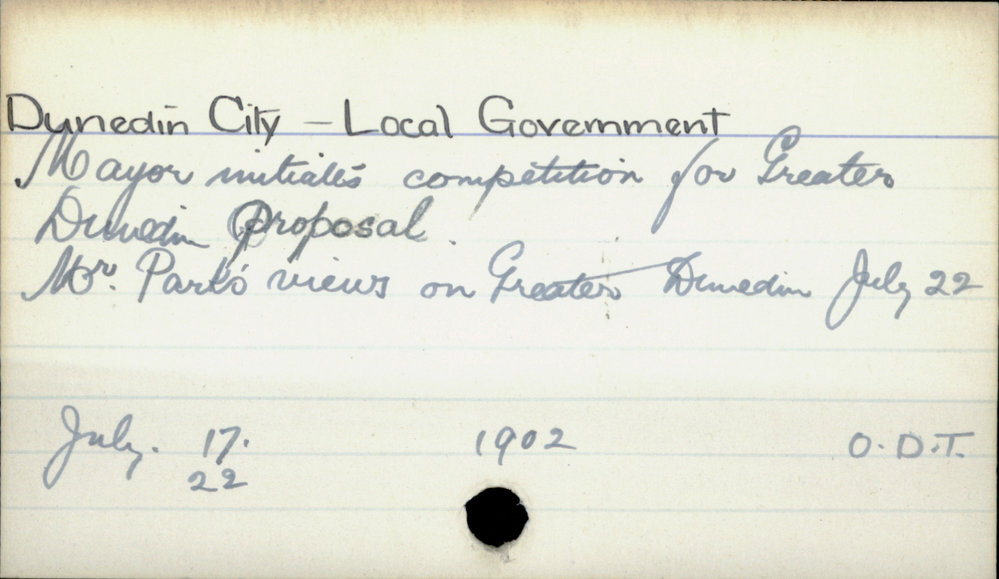 Dunedin City - Local Government
Mayor initiates competition for Greater
Dunedin Proposal.
Mr. Park's views on Greater Dunedin July 22
July. 17. 1902 O.D.T.
22